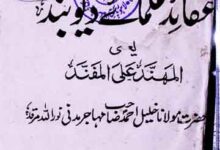 عقائد علمائے دیوبند
یعنی
المہند علی المفند
حضرت مولانا خلیل احمد صاحب مہاجر مدنی نور اللہ مرقدہ